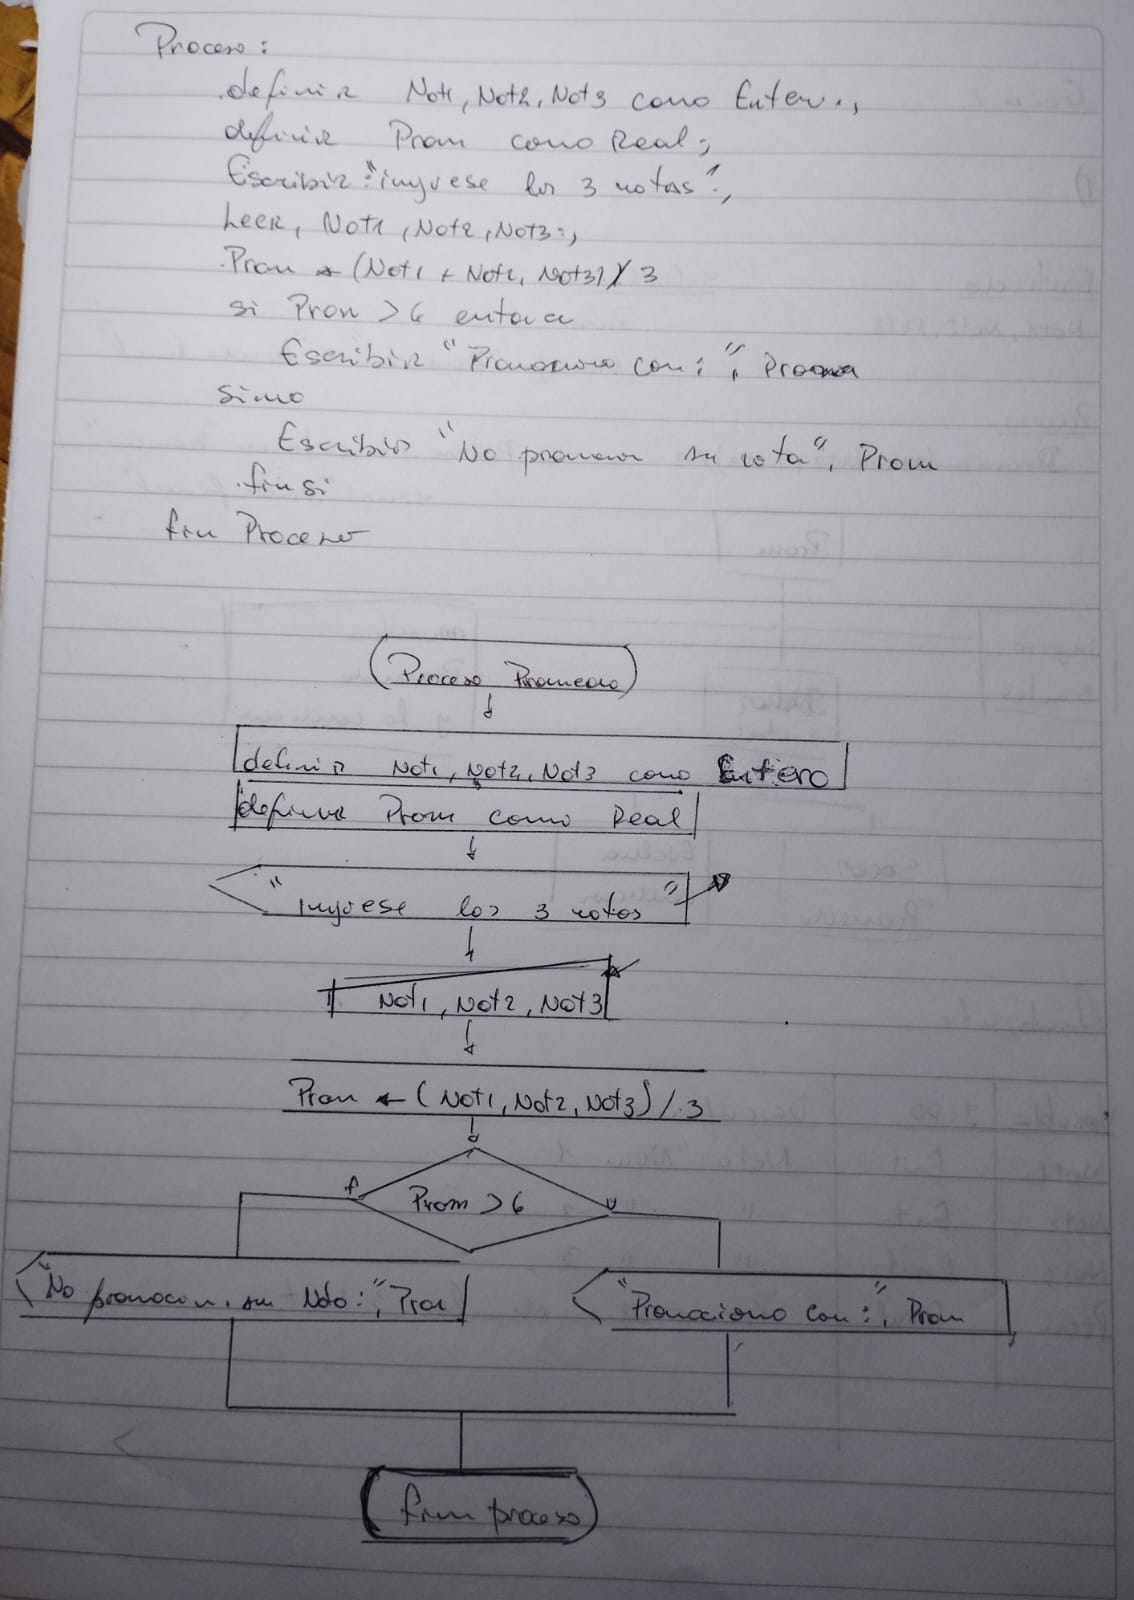 Proceso:
definir Not1, Not2, Not3 como Enter.,
definir Prom como Real;
Escribir "ingrese los 3 notas";
Leer, Not1, Not2, Not3;
Prom ← (Not1 + Not2, Not3) / 3
si Prom > 6 entonce
Escribir "Promociono con:", Prom
sino
Escribir "No promocion su nota", Prom
finsi
fin Proceso
Proceso Promedio
definir Not1, Not2, Not3 como Entero
definir Prom como Real
"Ingrese los 3 notas"
Not1, Not2, Not3
Prom ← (Not1, Not2, Not3) / 3
f Prom > 6 v
"No promocion. su Noto:", Prom
"Promociono con:", Prom
fin proceso